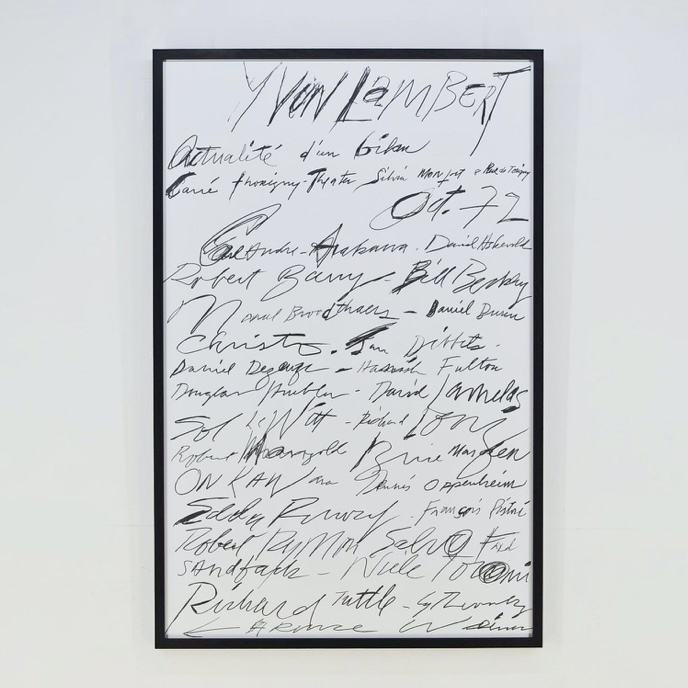 YVON LAMBERT
Actualité d'un bilan
Carré Thorigny - Theater Silvia Monfort
Oct. 72
Carl Andre - Arakawa - David Askevold
Robert Barry - Bill Beckley
Marcel Broodthaers - Daniel Buren
Christo - Jan Dibbets -
Daniel Dezeuze - Hamish Fulton
Douglas Huebler - David Lamelas
Sol LeWitt - Richard Long
Robert Mangold Brice Marden
ON KAWara Dennis Oppenheim
Edda Renouf - François Ristori
Robert Ryman Salvo Fred
SANDback - Niele Toroni
Richard Tuttle - Cy Twombly
Weiner